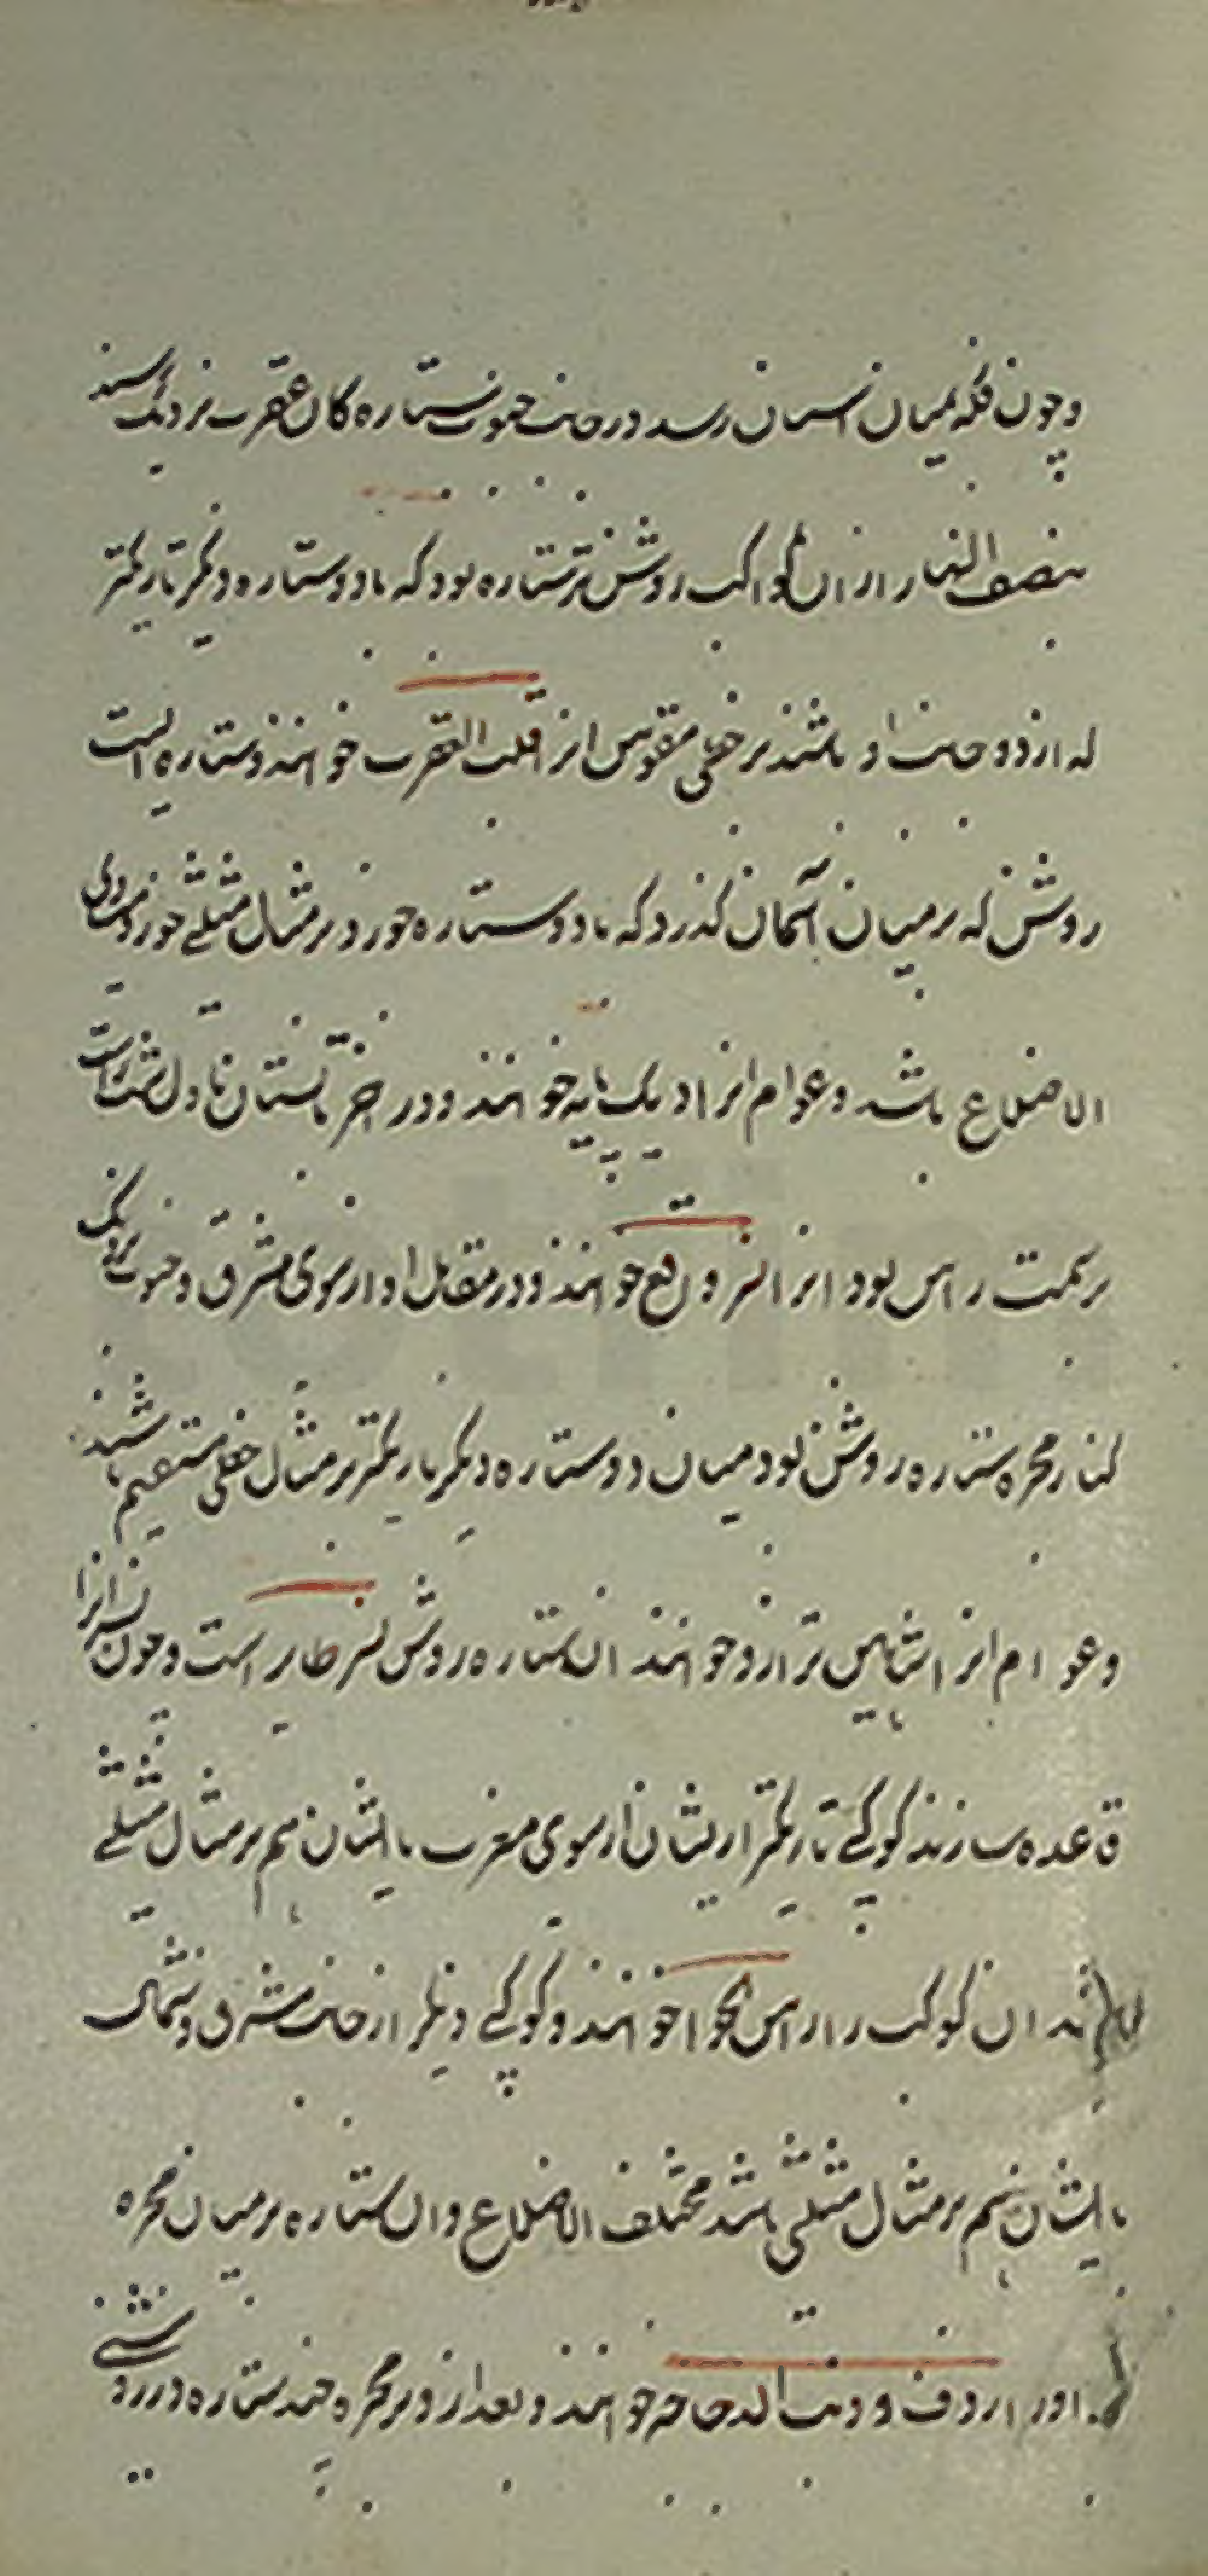 و چون فکه بمیان اسمان رسد در جانب جنوب ستاره کان عقرب نزدیک رسند
بنصف النهار از ان کواکب روشن تر ستاره بود که با دو ستاره دیگر تاریکتر
که از دو جانب او باشند بر خطی مقوس انرا قلب العقرب خوانند و ستاره ایست
روشن که بر میان آسمان کذرد که با دو ستاره خورد بر مثال مثلثی خورد متساوی
الاضلاع باشد و عوام انرا دیک پایه خوانند و در اخر تابستان تا اول شب راست
بر سمت راس بود انرا نسر واقع خوانند و در مقابل او از سوی مشرق و جنوب نزدیک
کنار مجره ستاره روشن بود میان دو ستاره دیگر تاریکتر بر مثال خطی مستقیم باشند
و عوام انرا شاهین ترازو خوانند ان ستاره روشن نسر طایر است و چون نسرانرا
قاعده سازند کوکبی تاریکتر از یشان از سوی مغرب با ایشان هم بر مثال مثلثی
ان کوکب را راس الحوا خوانند و کوکبی دیگر از جانب مشرق و شمال
با ایشان هم بر مثال مثلثی باشد مختلف الاضلاع و ان ستاره بر میان مجره
اورا ردف و ذنب الدجاجه خوانند و بعد از و بر مجره چند ستاره در روشنی